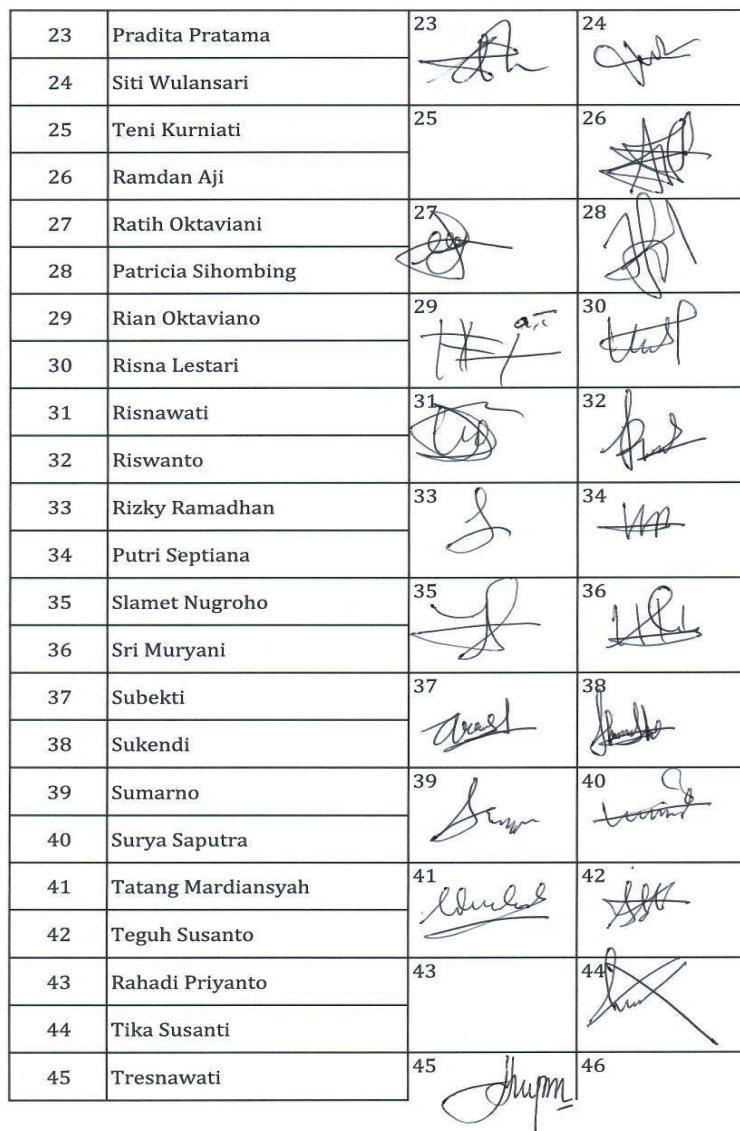 23 Pradita Pratama 23 24
24 Siti Wulansari
25 Teni Kurniati 25 26
26 Ramdan Aji
27 Ratih Oktaviani 27 28
28 Patricia Sihombing
29 Rian Oktaviano 29 30
30 Risna Lestari
31 Risnawati 31 32
32 Riswanto
33 Rizky Ramadhan 33 34
34 Putri Septiana
35 Slamet Nugroho 35 36
36 Sri Muryani
37 Subekti 37 38
38 Sukendi
39 Sumarno 39 40
40 Surya Saputra
41 Tatang Mardiansyah 41 42
42 Teguh Susanto
43 Rahadi Priyanto 43 44
44 Tika Susanti
45 Tresnawati 45 46